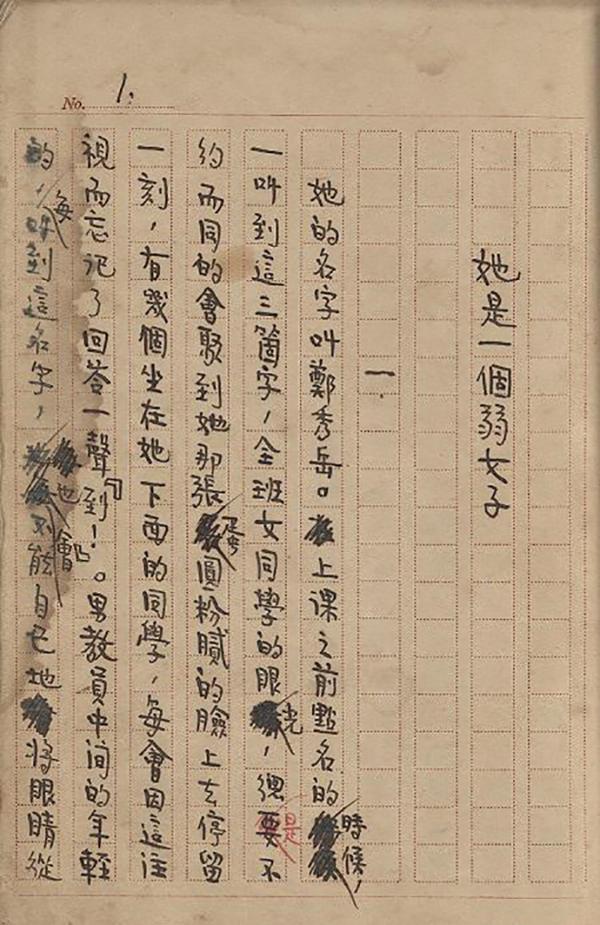 No. 1.
她是一個弱女子
一
她的名字叫鄭秀岳。上课之前點名的時候，
一叫到這三箇字，全班女同學的眼光，總是不
約而同的會聚到她那張蛋圓粉膩的臉上去停留
一刻，有幾個坐在她下面的同學，每會因這注
視而忘记了回答一聲『到！』。男教員中间的年輕
的，每叫到這名字，也會不能自已地將眼睛從